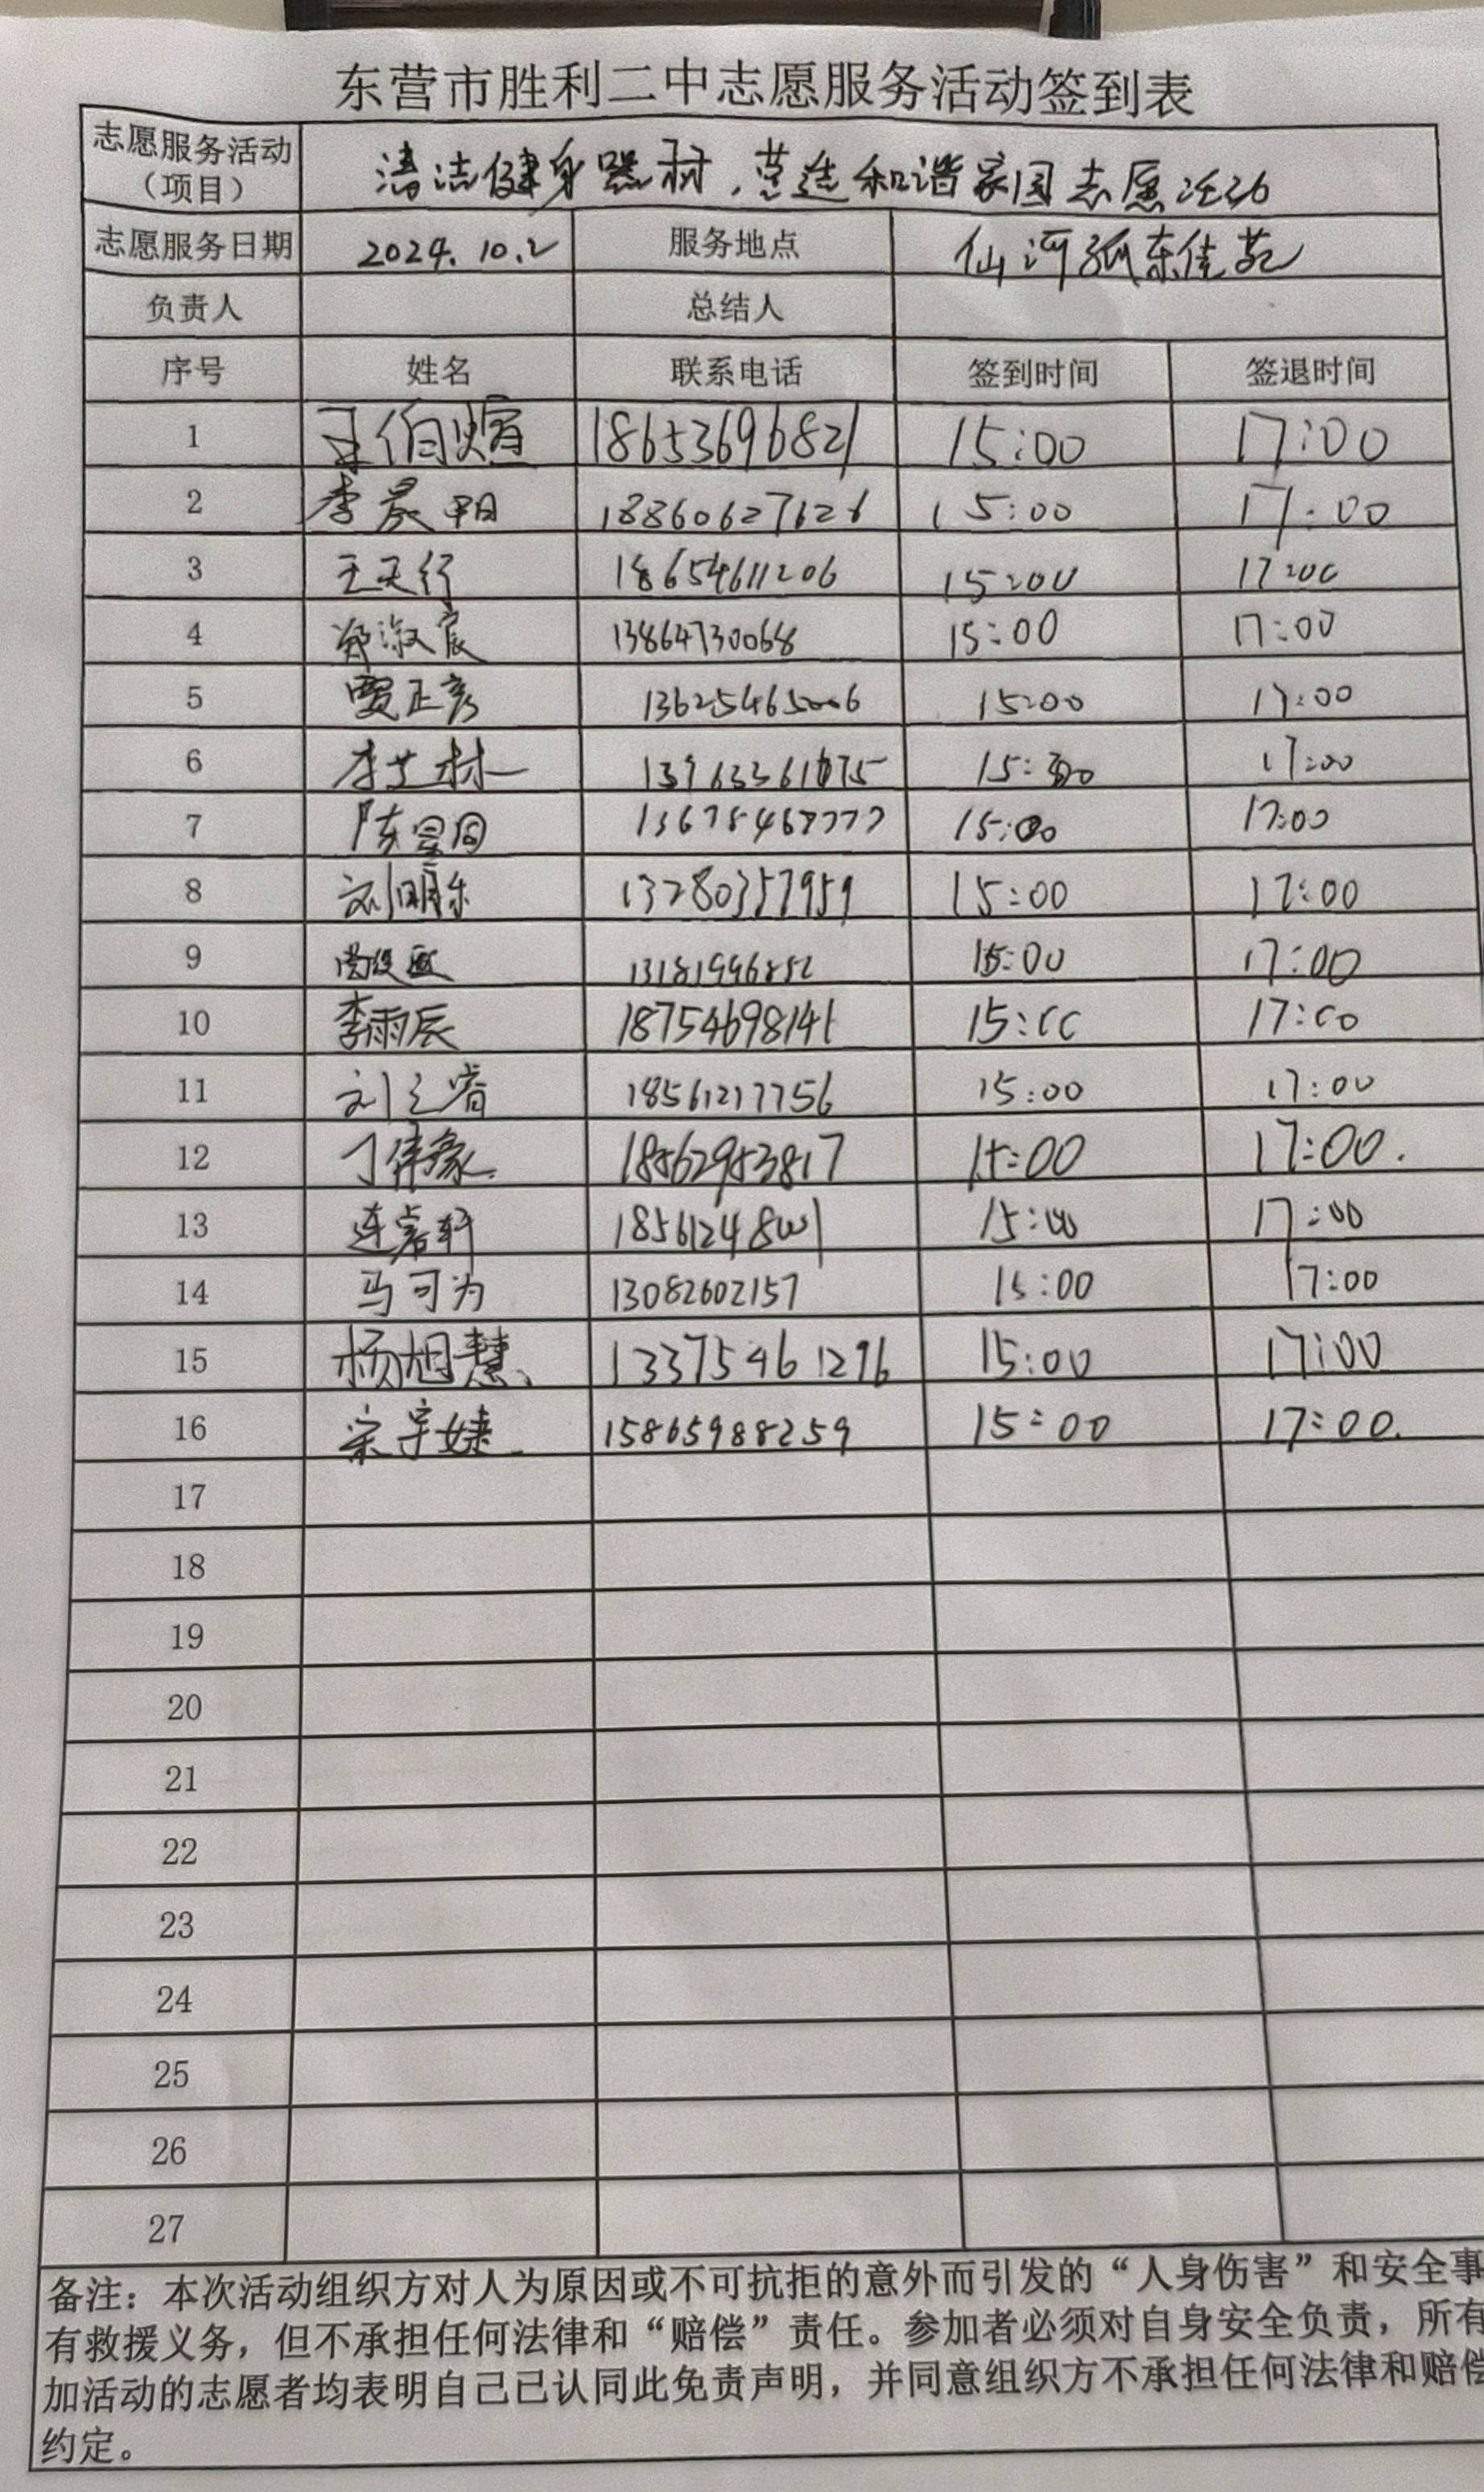 东营市胜利二中志愿服务活动签到表
志愿服务活动（项目） 清洁健身器材，营造和谐家园志愿活动
志愿服务日期 2024.10.2 服务地点 仙河孤东佳苑
负责人 总结人
序号 姓名 联系电话 签到时间 签退时间
1 王伯煊 18653696821 15:00 17:00
2 李晨阳 1886062762 15:00 17:00
3 王天行 18654611206 15:00 17:00
4 郑淑宸 13864730068 15:00 17:00
5 贾正彦 13625465006 15:00 17:00
6 李芝林 15:00 17:00
7 陈昱同 15:00 17:00
8 刘明乐 13280357959 15:00 17:00
9 15:00 17:00
10 李雨辰 18754698141 15:00 17:00
11 刘之睿 18561217756 15:00 17:00
12 丁伟豪. 18562953817 15:00 17:00.
13 连嘉轩 18561248001 15:00 17:00
14 马可为 13082602157 15:00 17:00
15 杨旭慧、 13375461296 15:00 17:00
16 宗宇婕 15865988259 15:00 17:00.
17
18
19
20
21
22
23
24
25
26
27
备注：本次活动组织方对人为原因或不可抗拒的意外而引发的“人身伤害”和安全事
有救援义务，但不承担任何法律和“赔偿”责任。参加者必须对自身安全负责，所有
加活动的志愿者均表明自己已认同此免责声明，并同意组织方不承担任何法律和赔偿
约定。